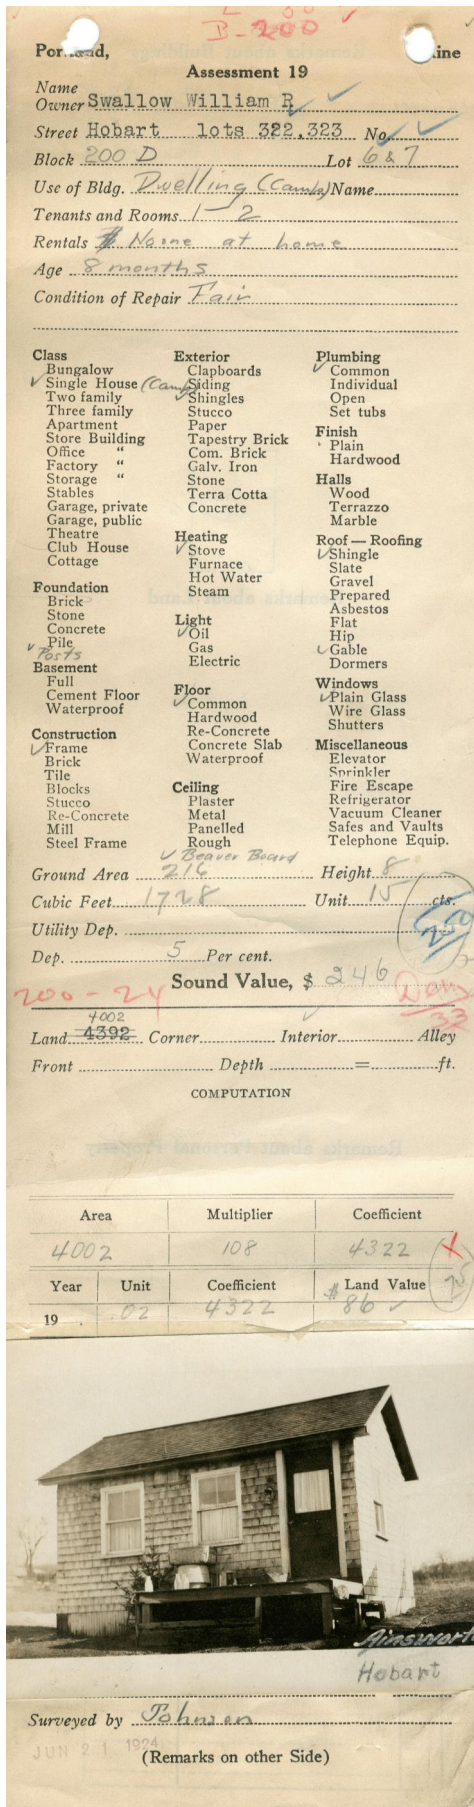 B-200
Portland, Maine
Assessment 19
Name
Owner Swallow William R
Street Hobart lots 322,323 No.
Block 200 D Lot 6 & 7
Use of Bldg. Dwelling (Camp) Name
Tenants and Rooms 1-2
Rentals $ No one at home
Age 8 months
Condition of Repair Fair
Class
Bungalow
✓ Single House (Camp)
Two family
Three family
Apartment
Store Building
Office "
Factory "
Storage "
Stables
Garage, private
Garage, public
Theatre
Club House
Cottage
Foundation
Brick
Stone
Concrete
✓ Pile
Posts
Basement
Full
Cement Floor
Waterproof
Construction
✓ Frame
Brick
Tile
Blocks
Stucco
Re-Concrete
Mill
Steel Frame
Exterior
Clapboards
Siding
✓ Shingles
Stucco
Paper
Tapestry Brick
Com. Brick
Galv. Iron
Stone
Terra Cotta
Concrete
Heating
✓ Stove
Furnace
Hot Water
Steam
Light
✓ Oil
Gas
Electric
Floor
✓ Common
Hardwood
Re-Concrete
Concrete Slab
Waterproof
Ceiling
Plaster
Metal
Panelled
Rough
✓ Beaver Board
Plumbing
✓ Common
Individual
Open
Set tubs
Finish
Plain
Hardwood
Halls
Wood
Terrazzo
Marble
Roof — Roofing
✓ Shingle
Slate
Gravel
Prepared
Asbestos
Flat
Hip
✓ Gable
Dormers
Windows
✓ Plain Glass
Wire Glass
Shutters
Miscellaneous
Elevator
Sprinkler
Fire Escape
Refrigerator
Vacuum Cleaner
Safes and Vaults
Telephone Equip.
Ground Area 216 Height 8
Cubic Feet 1728 Unit 15 cts.
250
Utility Dep.
Dep. 5 Per cent.
Sound Value, $ 246
200-24
4002
Land 4392 Corner Interior ✓ Alley
Front Depth = ft.
COMPUTATION
Area Multiplier Coefficient
4002 108 4322
Year Unit Coefficient Land Value
19 .02 4322 $ 86 ✓
Ainsworth
Hobart
Surveyed by Johnson
JUN 21 1924
(Remarks on other Side)